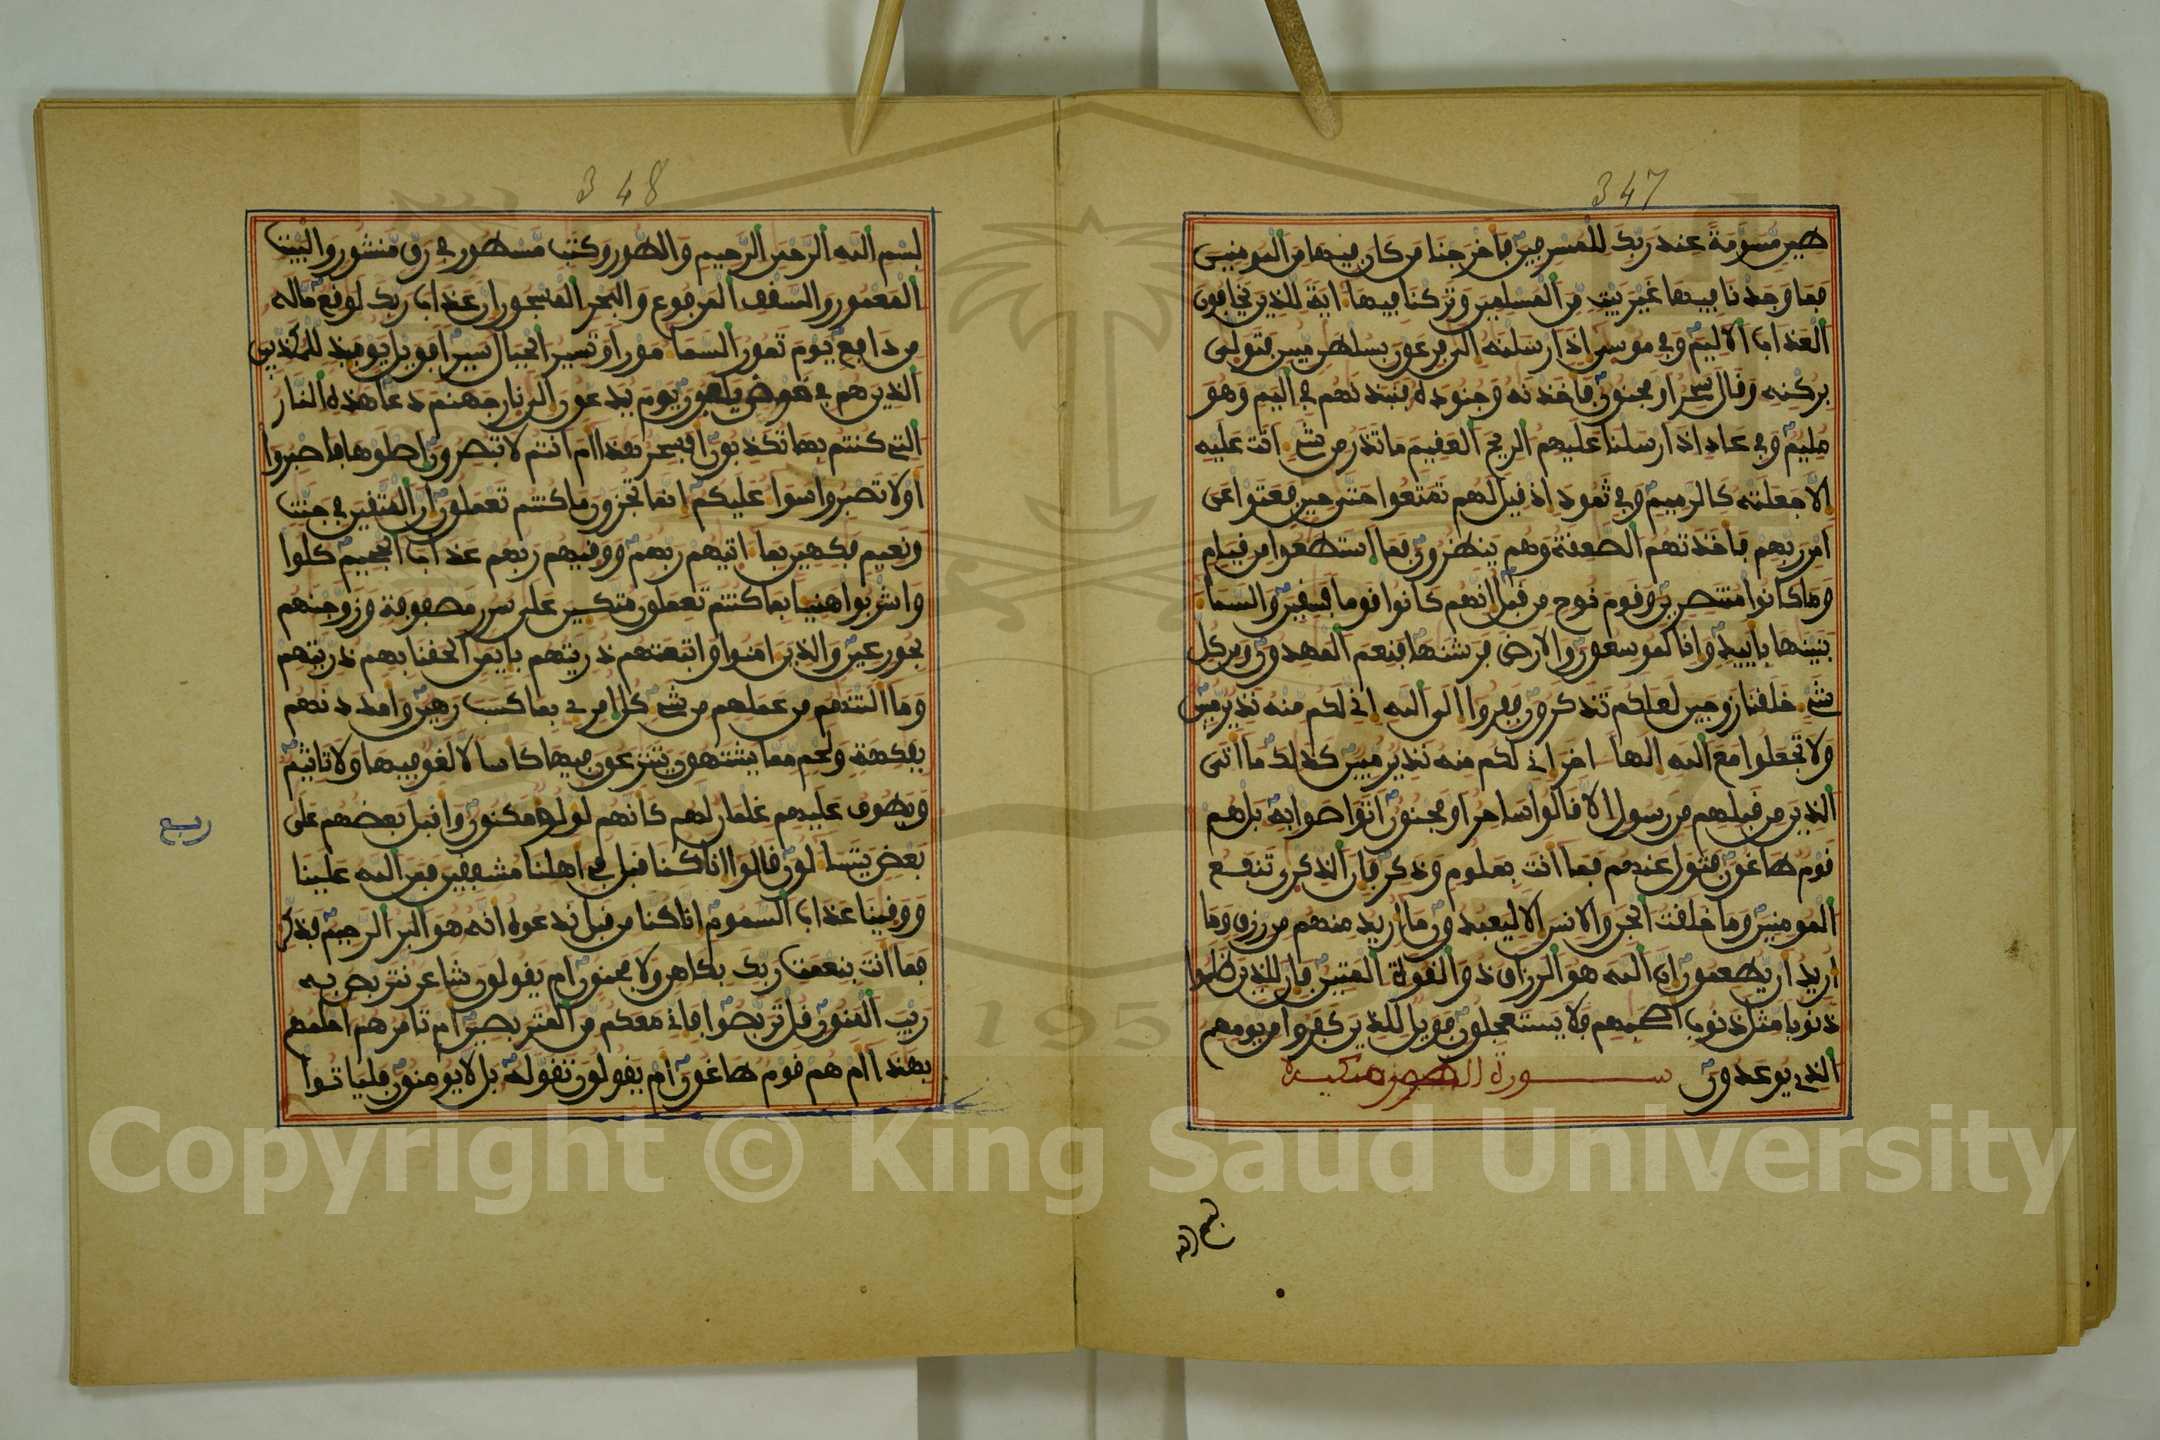 347
طين مسومة عند ربك للمسرفين فاخرجنا من كان فيها من المومنين
فما وجدنا فيها غير بيت من المسلمين وتركنا فيها اية للذين يخافون
العذاب الاليم وفي موسى اذ ارسلنه الى فرعون بسلطن مبين فتولى
بركنه وقال سحر او مجنون فاخذنه وجنوده فنبذنهم في اليم وهو
مليم وفي عاد اذ ارسلنا عليهم الريح العقيم ما تذر من شيء اتت عليه
الا جعلته كالرميم وفي ثمود اذ قيل لهم تمتعوا حتى حين فعتوا عن
امر ربهم فاخذتهم الصعقة وهم ينظرون فما استطعوا من قيام
وما كانوا منتصرين وقوم نوح من قبل انهم كانوا قوما فسقين والسماء
بنينها باييد وانا لموسعون والارض فرشنها فنعم المهدون ومن كل
شيء خلقنا زوجين لعلكم تذكرون ففروا الى الله اني لكم منه نذير مبين
ولا تجعلوا مع الله الها اخر اني لكم منه نذير مبين كذلك ما اتى
الذين من قبلهم من رسول الا قالوا ساحر او مجنون اتواصوا به بل هم
قوم طاغون فتول عنهم فما انت بملوم وذكر فان الذكرى تنفع
المومنين وما خلقت الجن والانس الا ليعبدون ما اريد منهم من رزق وما
اريد ان يطعمون ان الله هو الرزاق ذو القوة المتين فان للذين ظلموا
ذنوبا مثل ذنوب اصحبهم فلا يستعجلون فويل للذين كفروا من يومهم
الذي يوعدون سورة الطور مكية
بسم الله
348
بسم الله الرحمن الرحيم والطور وكتب مسطور في رق منشور والبيت
المعمور والسقف المرفوع والبحر المسجور ان عذاب ربك لوقع ما له
من دافع يوم تمور السماء مورا وتسير الجبال سيرا فويل يومئذ للمكذبين
الذين هم في خوض يلعبون يوم يدعون الى نار جهنم دعا هذه النار
التي كنتم بها تكذبون افسحر هذا ام انتم لا تبصرون اصلوها فاصبروا
او لا تصبروا سواء عليكم انما تجزون ما كنتم تعملون ان المتقين في جنت
ونعيم فكهين بما اتيهم ربهم ووقيهم ربهم عذاب الجحيم كلوا
واشربوا هنيئا بما كنتم تعملون متكئين على سرر مصفوفة وزوجنهم
بحور عين والذين امنوا واتبعتهم ذريتهم بايمن الحقنا بهم ذريتهم
وما التنهم من عملهم من شيء كل امرئ بما كسب رهين وامددنهم
بفكهة ولحم مما يشتهون يتنزعون فيها كاسا لا لغو فيها ولا تاثيم
ويطوف عليهم غلمان لهم كانهم لولو مكنون واقبل بعضهم على
بعض يتساءلون قالوا انا كنا قبل في اهلنا مشفقين فمن الله علينا
ووقينا عذاب السموم انا كنا من قبل ندعوه انه هو البر الرحيم فذكر
فما انت بنعمت ربك بكاهن ولا مجنون ام يقولون شاعر نتربص به
ريب المنون قل تربصوا فاني معكم من المتربصين ام تامرهم احلمهم
بهذا ام هم قوم طاغون ام يقولون تقوله بل لا يومنون فلياتوا
ربع
Copyright © King Saud University
195